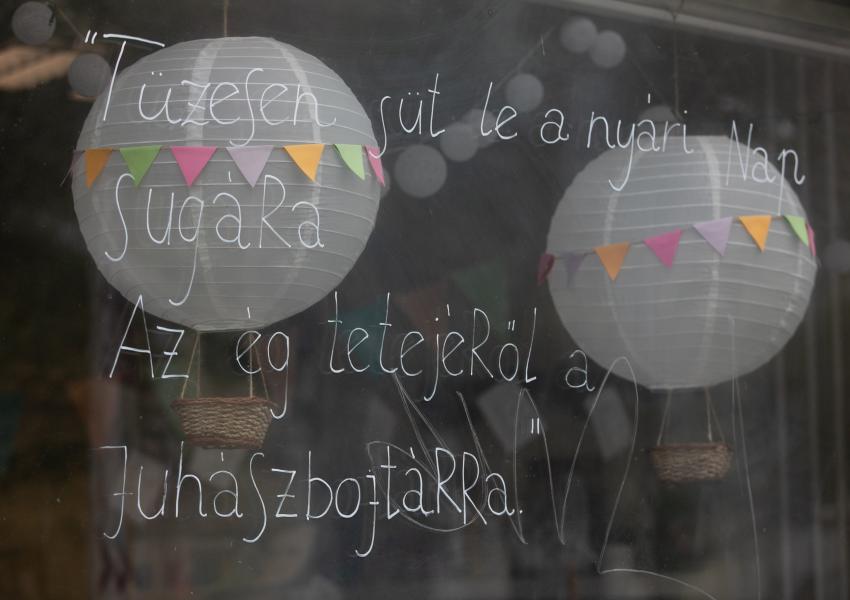 "Tüzesen süt le a nyári Nap
sugára
Az ég tetejéről a
Juhászbojtárra."